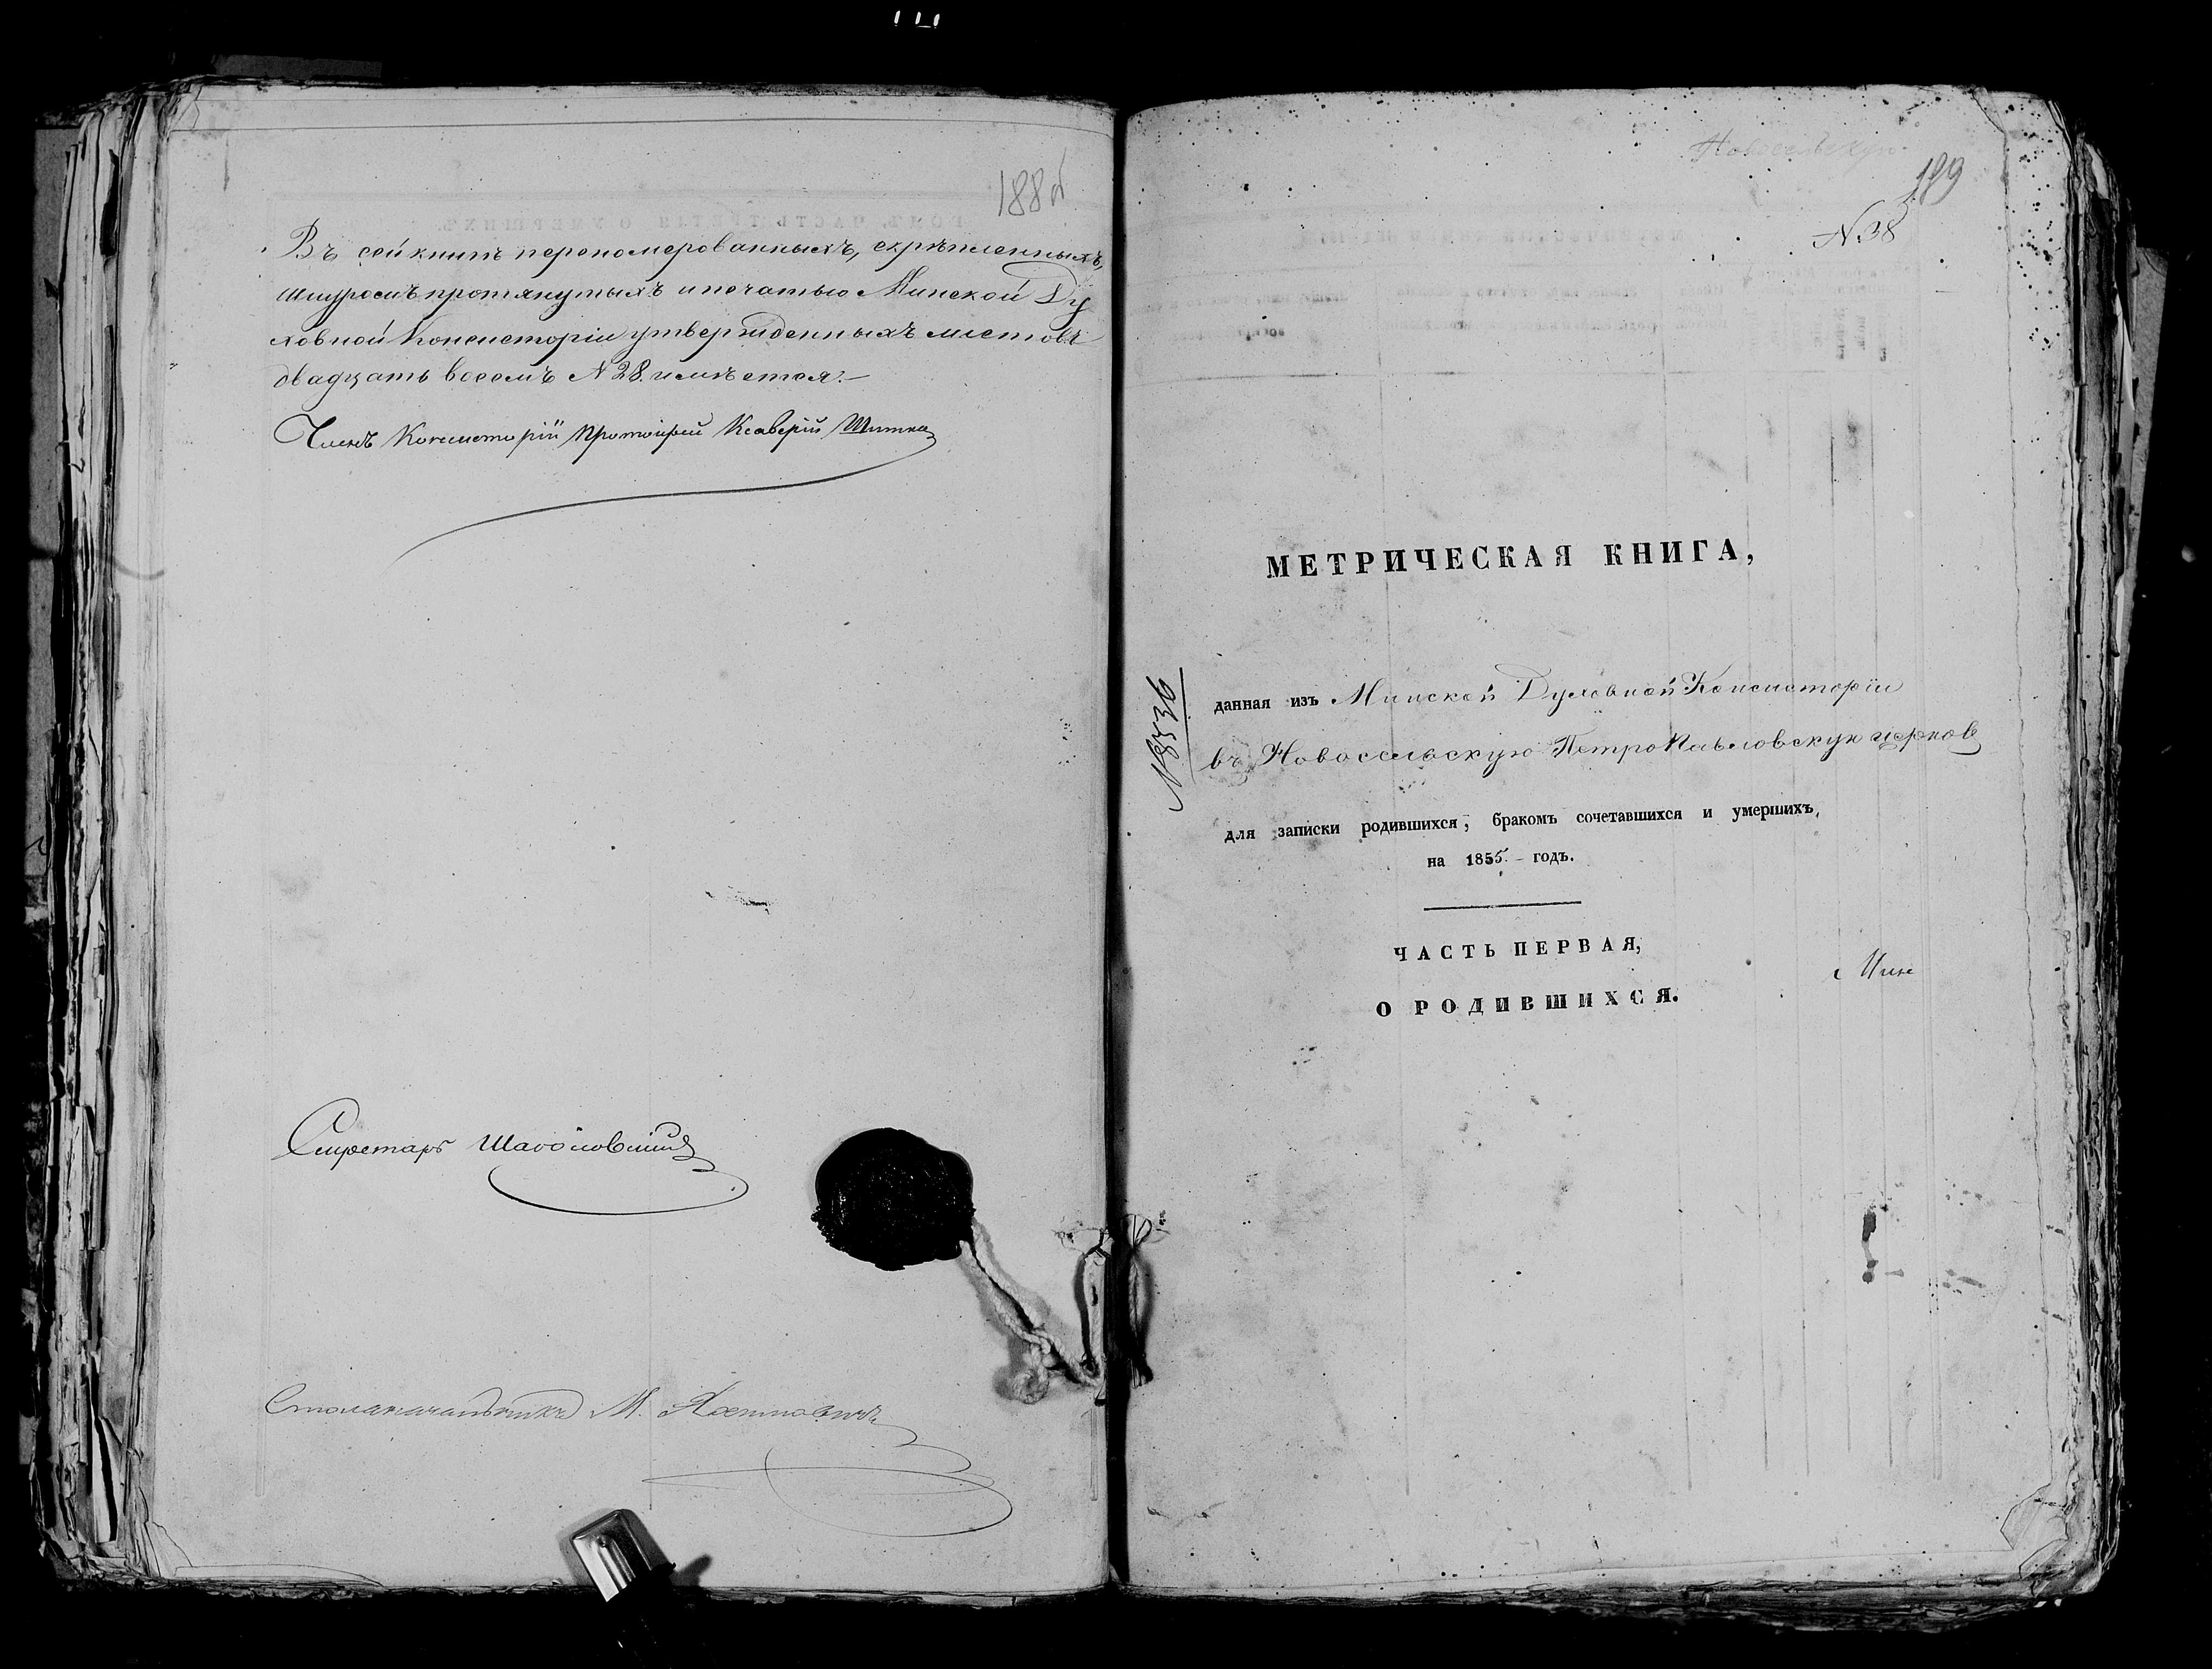 188 об
Въ сей книгѣ перономерованныхъ, скрѣпленныхъ,
шнуромъ протянутыхъ и печатью Минской Ду
ховной Консисторіи утвержденныхъ листовъ
двадцать восемъ N 28. имѣется.—
Членъ Консисторіи Протоіерей Ксаверій
Секретарь
Столоначальникъ М.
Новосельскую
189
N 38
МЕТРИЧЕСКАЯ КНИГА,
N 8536
данная изъ Минской Духовной Консисторіи
въ Новосельскую ПетроПавловскую церковь
для записки родившихся, бракомъ сочетавшихся и умершихъ,
на 1855.— годъ.
ЧАСТЬ ПЕРВАЯ,
О РОДИВШИХСЯ.